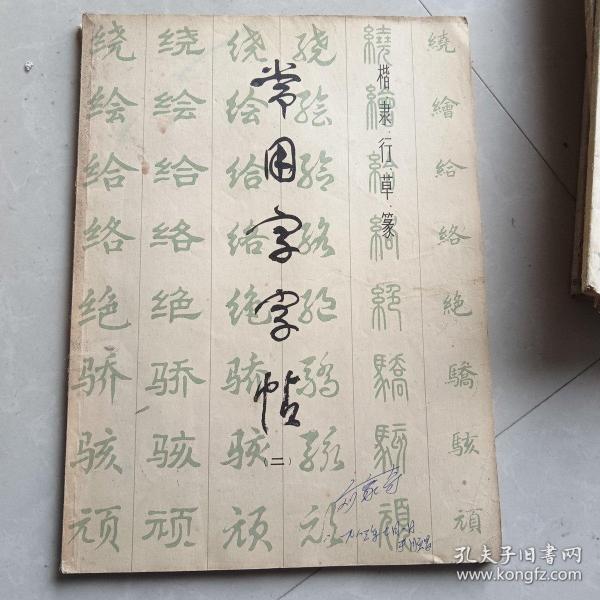 常用字字帖
（二）
楷·隶·行·草·篆
绕 绕 绕 绕 繞 繞
绘 绘 绘 绘 繪 繪
给 给 给 给 給 給
络 络 络 络 絡 絡
绝 绝 绝 绝 絕 絕
骄 骄 骄 骄 驕 驕
骇 骇 骇 骇 駭 駭
顽 顽 顽 顽 頑 頑
孔夫子旧书网
www.kongfz.com